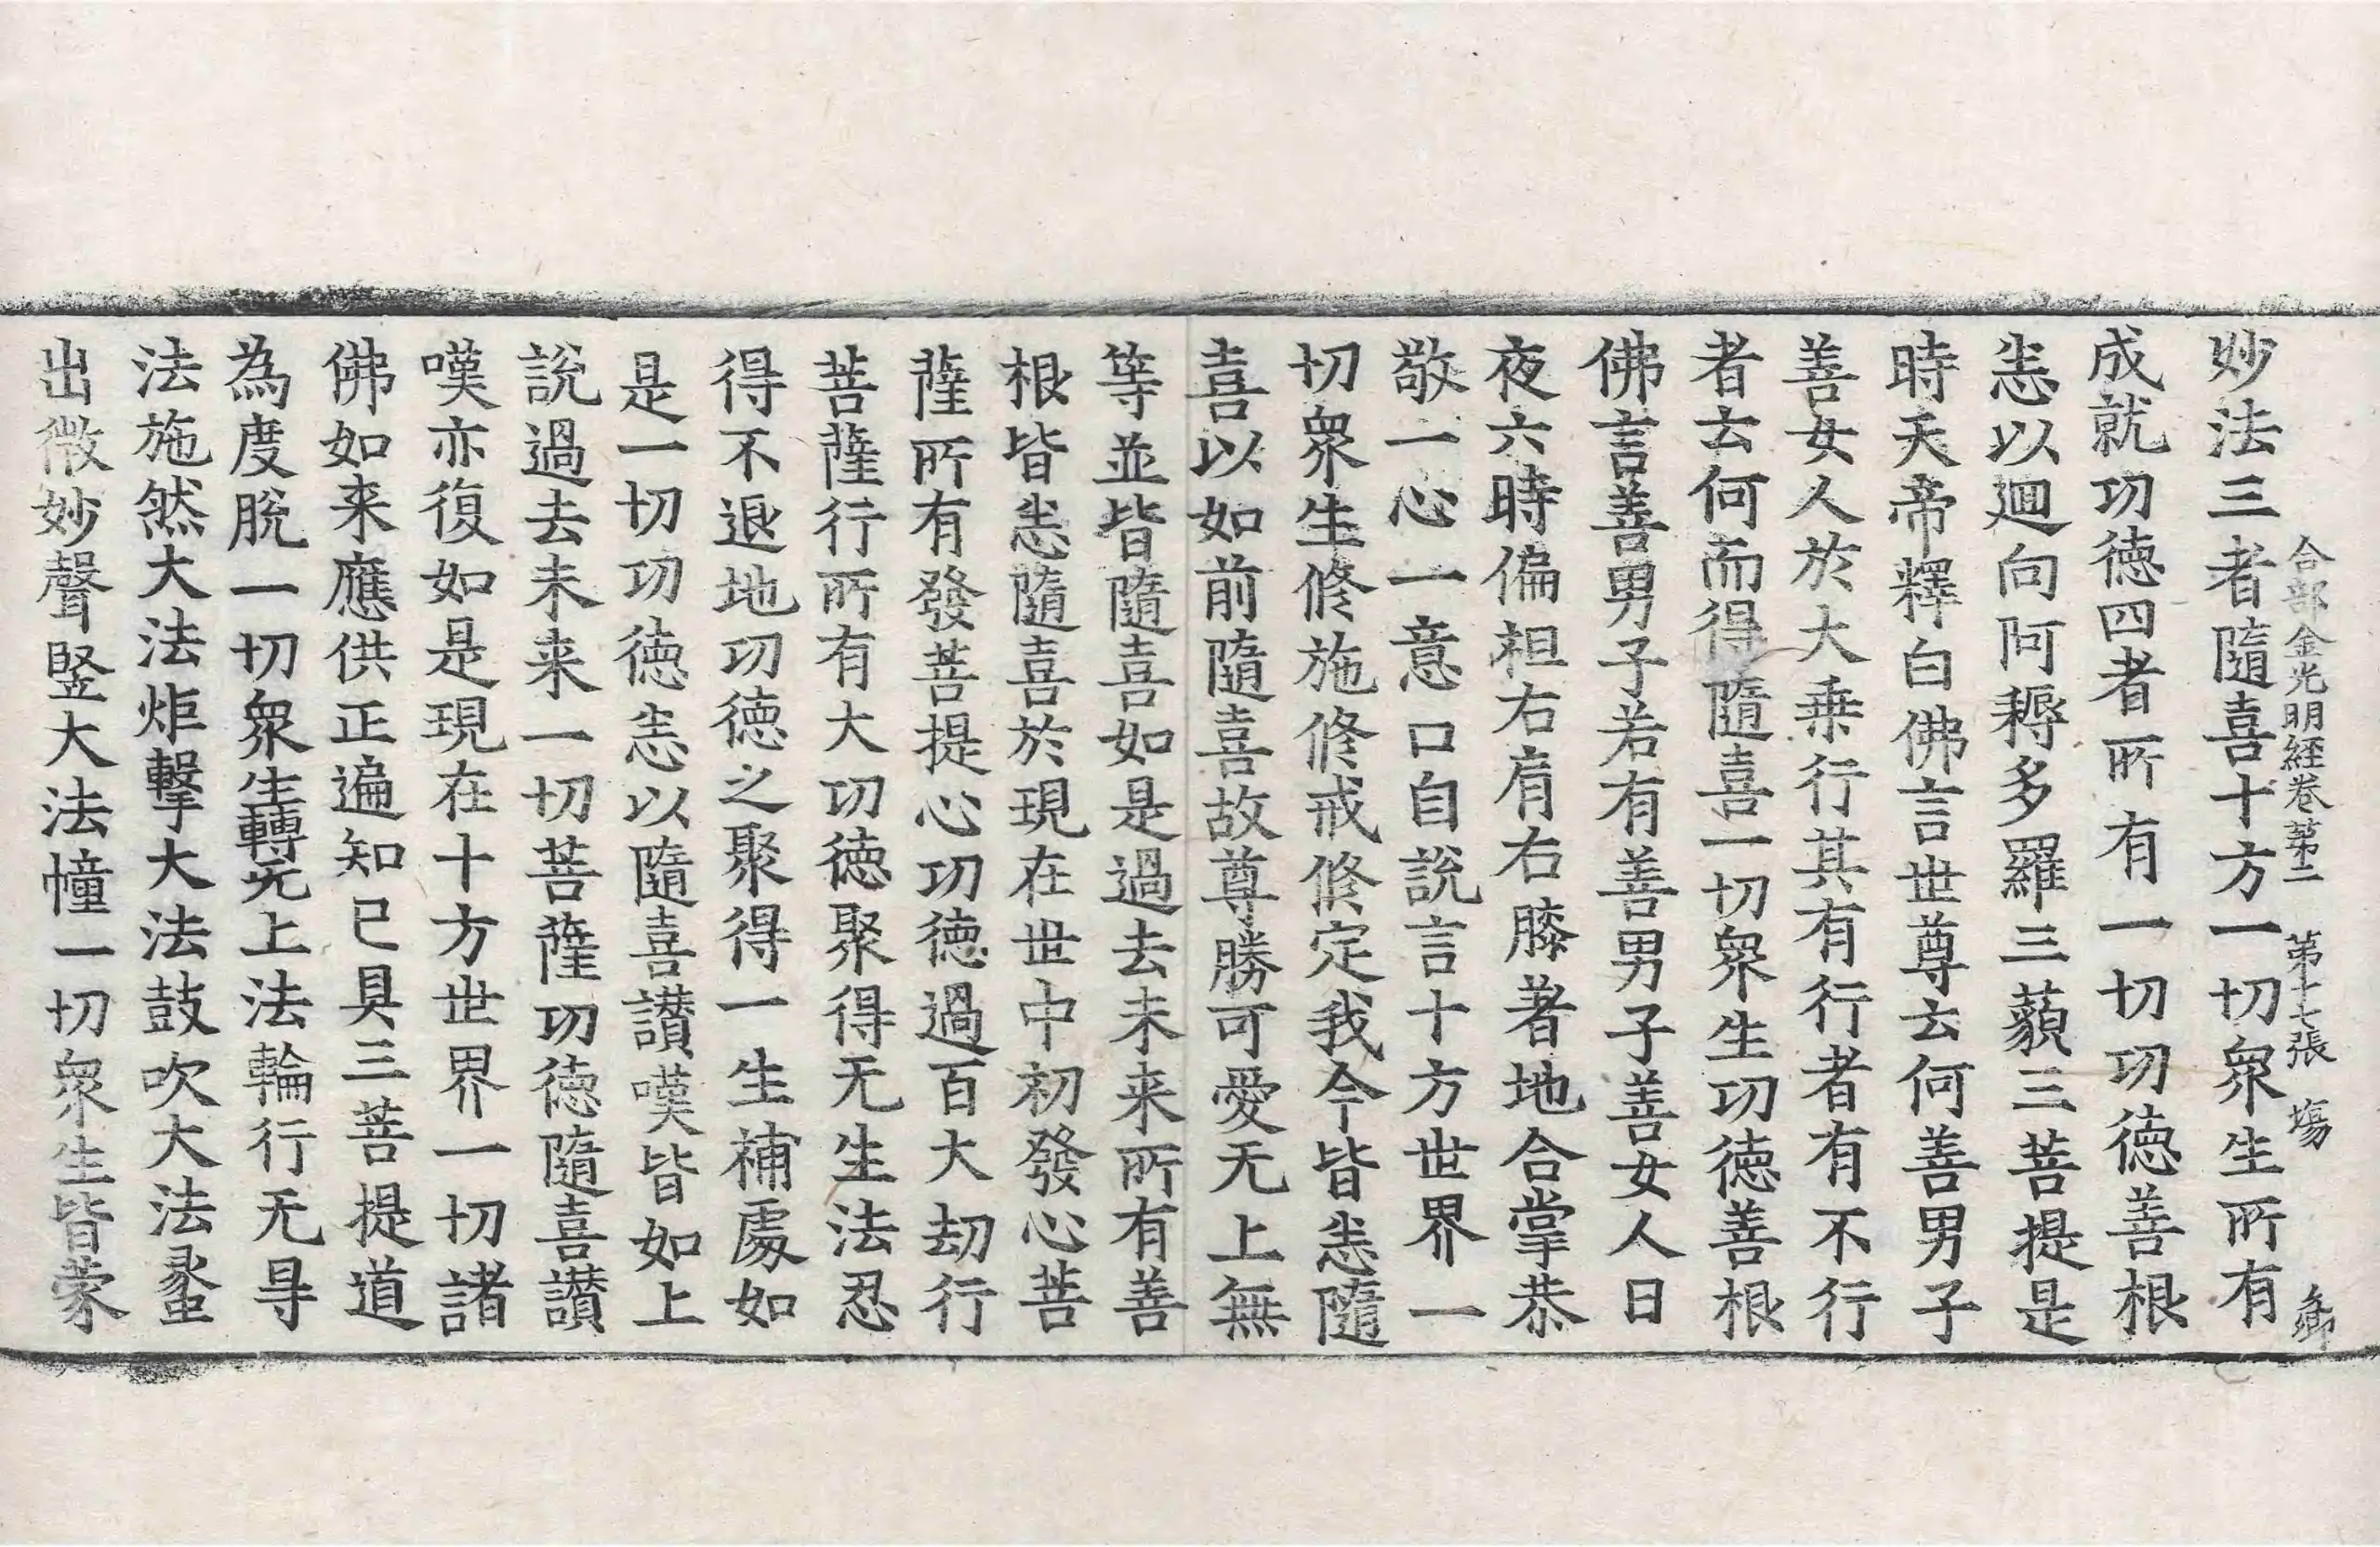 合部金光明経卷第二 第十七張 塲
妙法三者隨喜十方一切衆生所有
成就功德四者所有一切功德善根
悉以迴向阿耨多羅三藐三菩提是
時天帝釋白佛言世尊云何善男子
善女人於大乗行其有行者有不行
者云何而得隨喜一切衆生功德善根
佛言善男子若有善男子善女人日
夜六時偏袒右肩右膝著地合掌恭
敬一心一意口自說言十方世界一
切衆生修施修戒修定我今皆悉隨
喜以如前隨喜故尊勝可愛无上無
等並皆隨喜如是過去未来所有善
根皆悉隨喜於現在世中初發心菩
薩所有發菩提心功德過百大劫行
菩薩行所有大功德聚得无生法忍
得不退地功德之聚得一生補處如
是一切功德悉以隨喜讃嘆皆如上
說過去未来一切菩薩功德隨喜讃
嘆亦復如是現在十方世界一切諸
佛如来應供正遍知已具三菩提道
為度脫一切衆生轉无上法輪行无㝵
法施然大法炬擊大法鼓吹大法䗍
出微妙聲竪大法幢一切衆生皆蒙